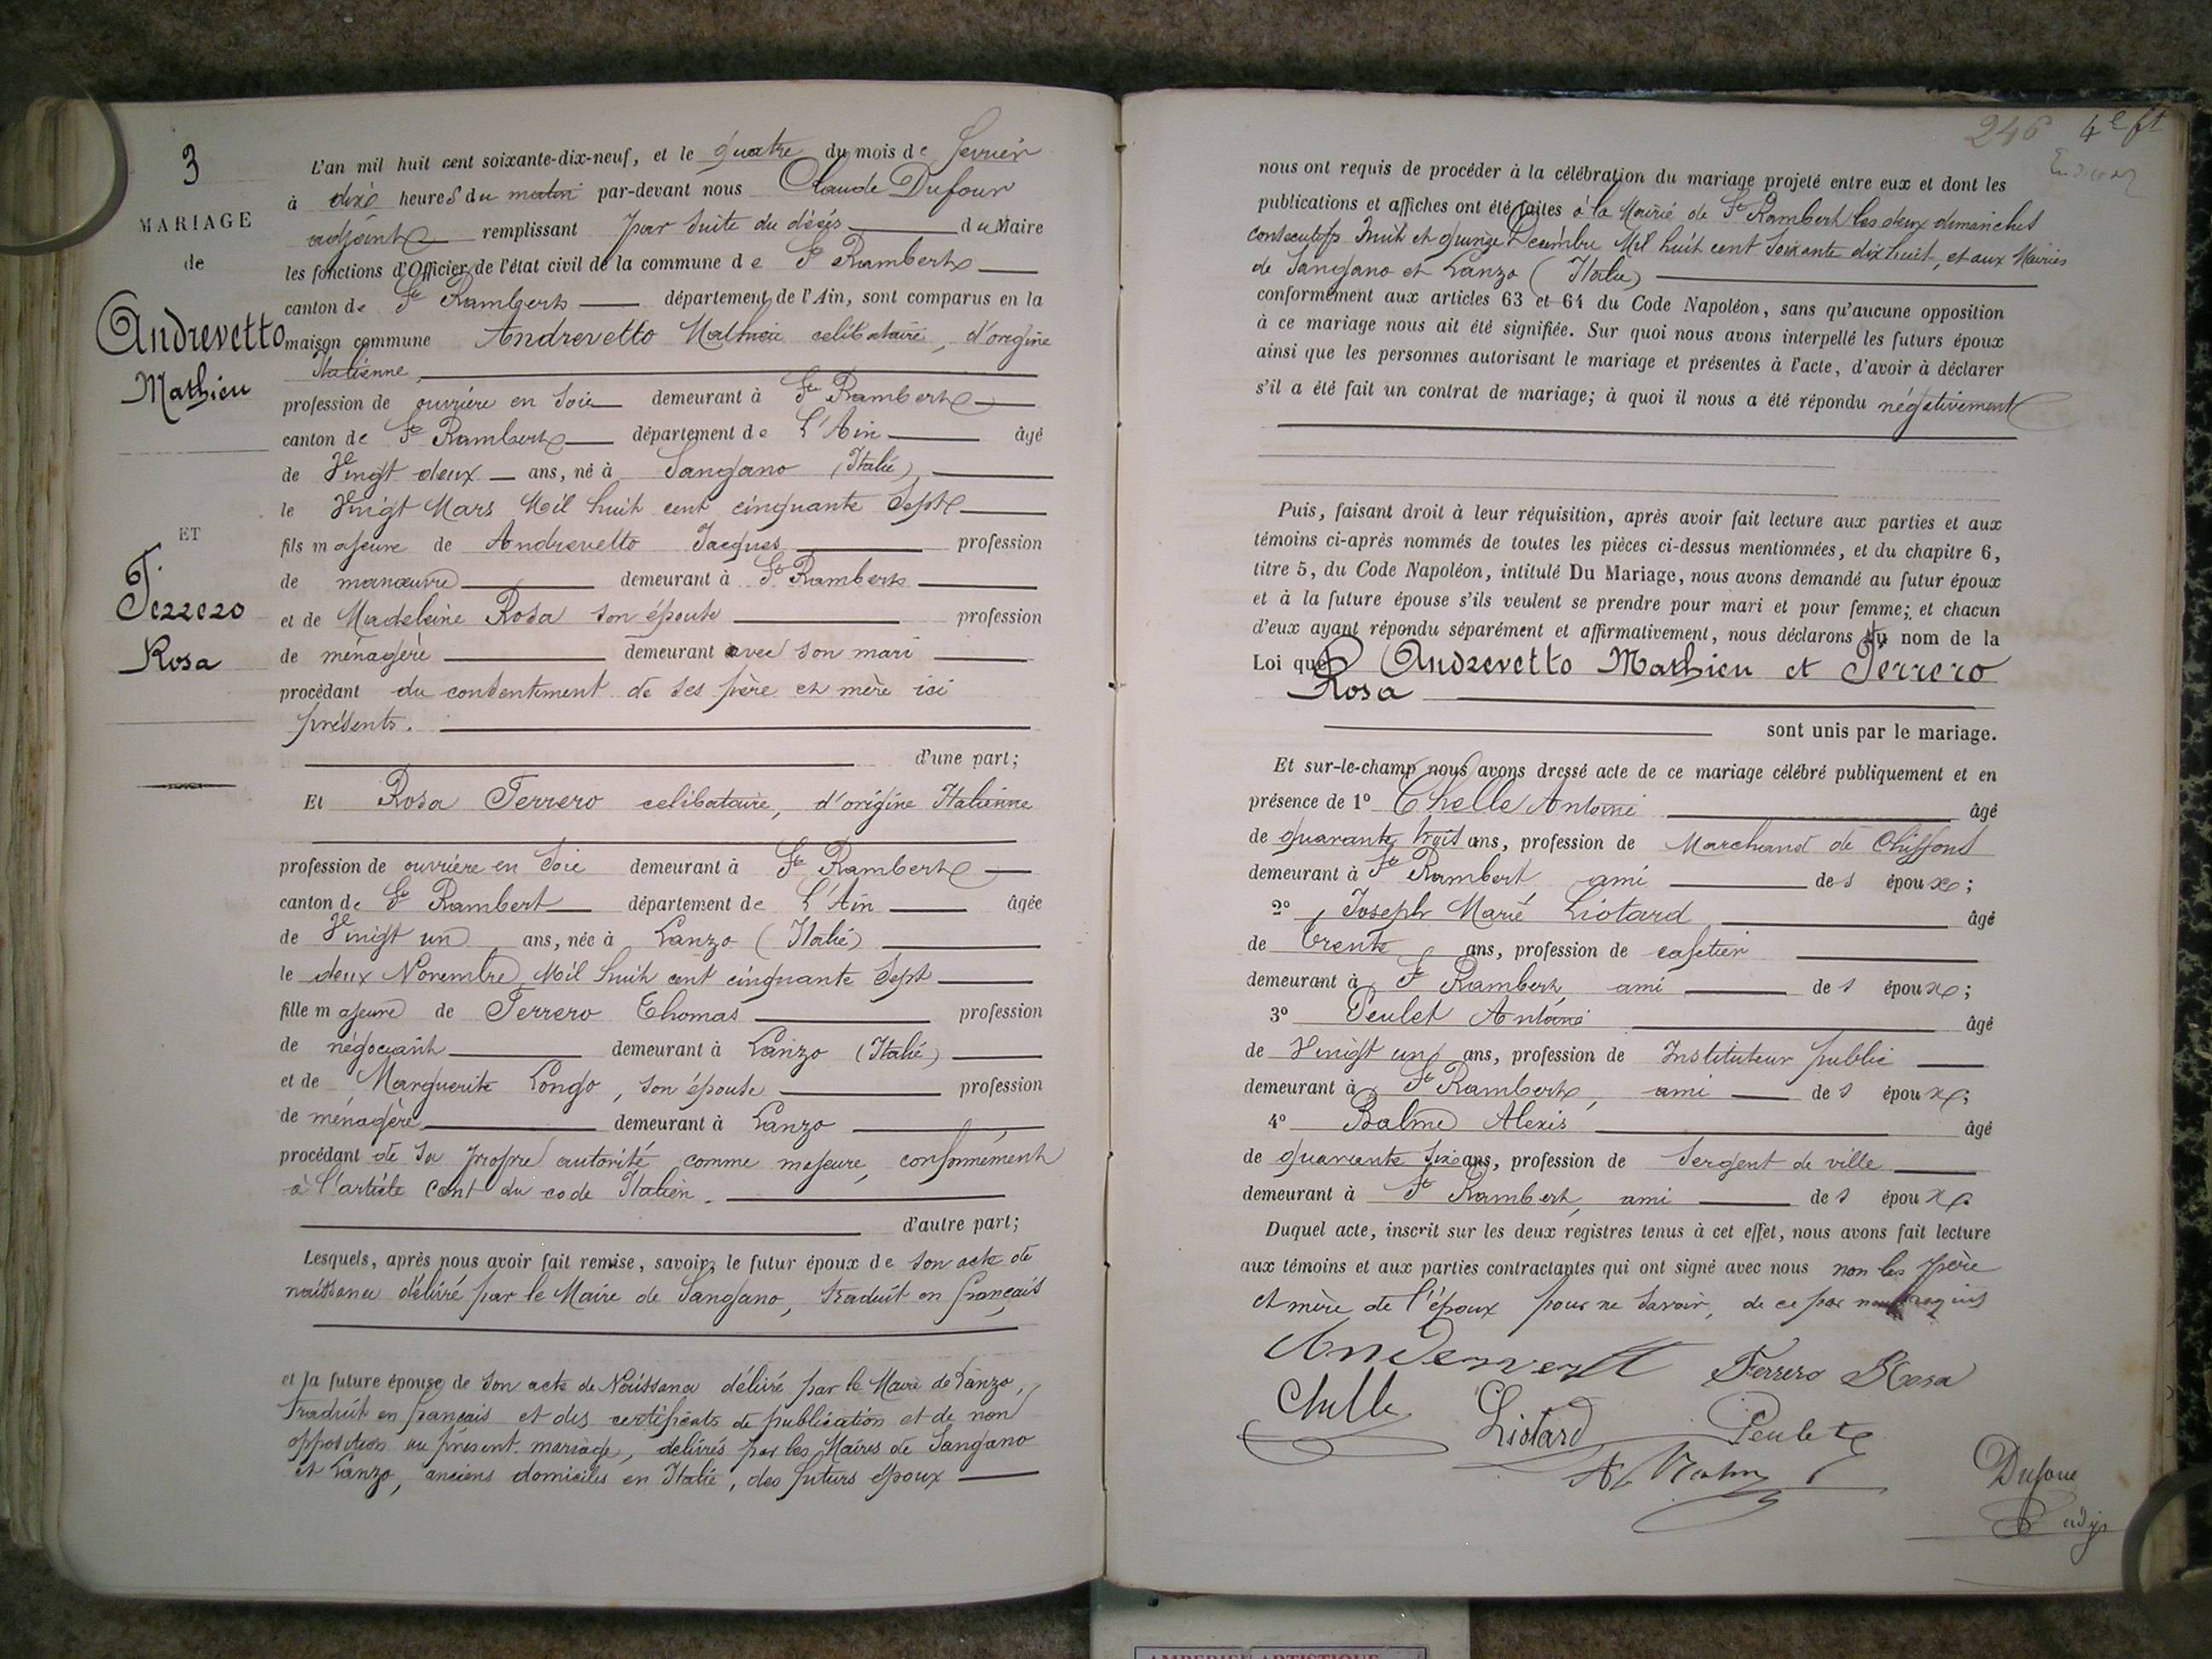 3
MARIAGE
de
Andrevetto
Mathieu
ET
Ferrero
Rosa
L'an mil huit cent soixante-dix-neuf, et le quatre du mois de fevrier
à dix heures du matin par-devant nous Claude Dufour
adjoint remplissant par suite du décés du Maire
les fonctions d'Officier de l'état civil de la commune de St Rambert
canton de St Rambert département de l'Ain, sont comparus en la
maison commune Andrevetto Mathieu celibataire, d'origine
Italienne,
profession de ouvrière en soie demeurant à St Rambert
canton de St Rambert département de L'Ain âgé
de Vingt deux ans, né à Sangano (Italie)
le Vingt Mars Mil huit cent cinquante Sept
fils majeure de Andrevetto Jacques profession
de manœuvre demeurant à St Rambert
et de Madeleine Rosa son épouse profession
de ménagère demeurant avec son mari
procédant du consentement de ses père et mère ici
présents.
d'une part;
Et Rosa Ferrero celibataire, d'origine Italienne
profession de ouvrière en soie demeurant à St Rambert
canton de St Rambert département de L'Ain âgée
de Vingt un ans, née à Lanzo (Italie)
le deux Novembre Mil huit cent cinquante Sept
fille majeure de Ferrero Thomas profession
de négociant demeurant à Lanzo (Italie)
et de Marguerite Longo, son épouse profession
de ménagère demeurant à Lanzo
procédant de sa propre autorité comme majeure, conformément
à l'article cent du code Italien.
d'autre part;
Lesquels, après nous avoir fait remise, savoir, le futur époux de son acte de
naissance délivré par le Maire de Sangano, traduit en français
et la future épouse de son acte de Naissance délivré par le Maire de Lanzo,
traduit en français et des certificats de publication et de non
opposition au présent mariage, délivrés par les Maires de Sangano
et Lanzo, anciens domiciles en Italie, des futurs époux
246 4e ft
nous ont requis de procéder à la célébration du mariage projeté entre eux et dont les
publications et affiches ont été faites à la Mairie de St Rambert les deux dimanches
consecutifs huit et quinze Decembre Mil huit cent soixante dix huit, et aux Mairies
de Sangano et Lanzo (Italie)
conformément aux articles 63 et 64 du Code Napoléon, sans qu'aucune opposition
à ce mariage nous ait été signifiée. Sur quoi nous avons interpellé les futurs époux
ainsi que les personnes autorisant le mariage et présentes à l'acte, d'avoir à déclarer
s'il a été fait un contrat de mariage; à quoi il nous a été répondu négativement
Puis, faisant droit à leur réquisition, après avoir fait lecture aux parties et aux
témoins ci-après nommés de toutes les pièces ci-dessus mentionnées, et du chapitre 6,
titre 5, du Code Napoléon, intitulé Du Mariage, nous avons demandé au futur époux
et à la future épouse s'ils veulent se prendre pour mari et pour femme; et chacun
d'eux ayant répondu séparément et affirmativement, nous déclarons au nom de la
Loi que Andrevetto Mathieu et Ferrero
Rosa
sont unis par le mariage.
Et sur-le-champ nous avons dressé acte de ce mariage célébré publiquement et en
présence de 1º Chelle Antoine âgé
de quarante trois ans, profession de Marchand de Chiffons
demeurant à St Rambert ami des époux;
2º Joseph Marie Liotard âgé
de trente ans, profession de cafetier
demeurant à St Rambert, ami des époux;
3º Peulet Antoine âgé
de Vingt un ans, profession de Instituteur public
demeurant à St Rambert, ami des époux;
4º Balme Alexis âgé
de quarante six ans, profession de Sergent de ville
demeurant à St Rambert, ami des époux.
Duquel acte, inscrit sur les deux registres tenus à cet effet, nous avons fait lecture
aux témoins et aux parties contractantes qui ont signé avec nous non les père
et mère de l'époux pour ne savoir, de ce par nous requis
Ferrero Rosa
Chelle Liotard Peulet
Dufour
adjt
AMBERIEU ARTISTIQUE